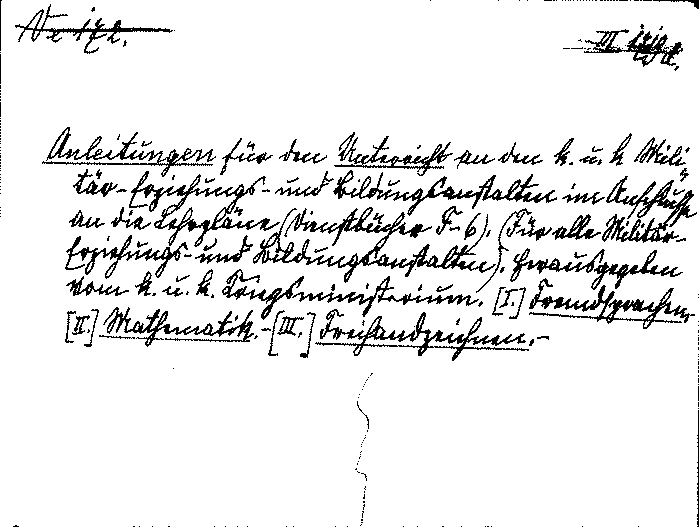 Nr 172.
III
Anleitungen für den Unterricht an den k. u. k Mili-
tär-Erziehungs- und Bildungsanstalten im Anschluße
an die Lehrpläne (Dienstbücher F-6). (Für alle Militär-
Erziehungs- und Bildungsanstalten). Herausgegeben
vom k. u. k. Kriegsministerium. [I.] Fremdsprachen,-
[II.] Mathematik.-[III.] Freihandzeichnen.-